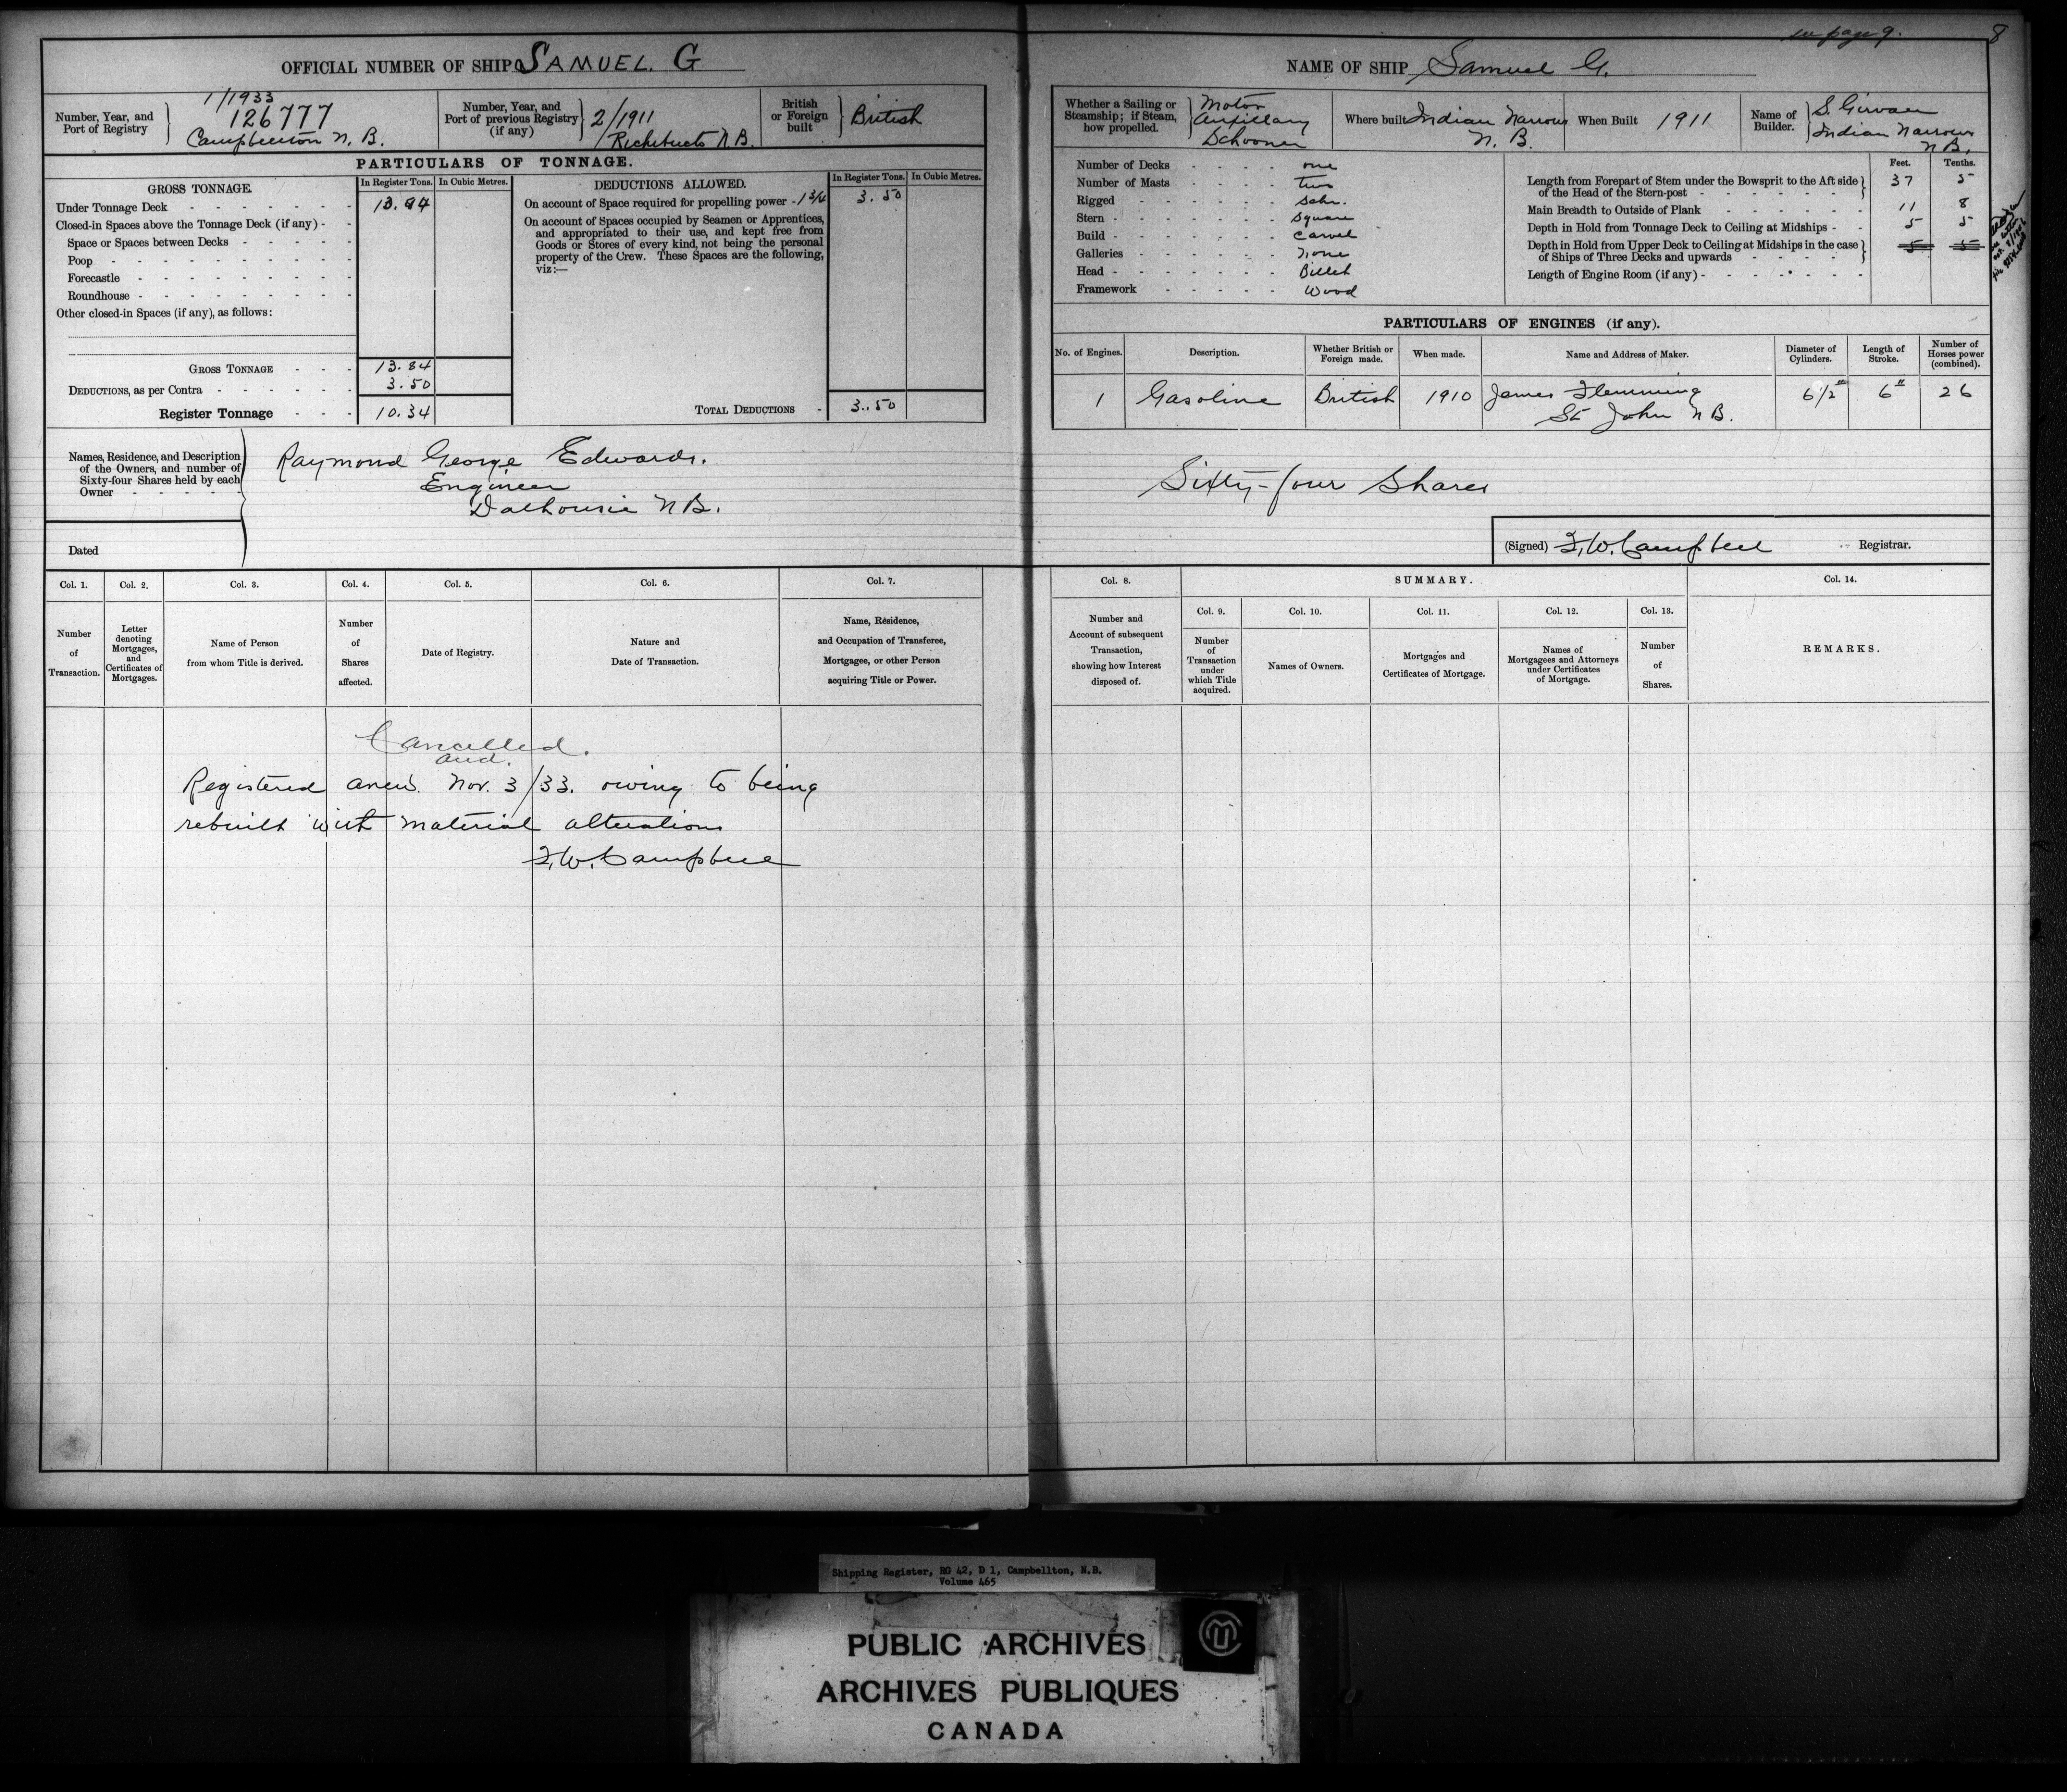 see page 9.
8
OFFICIAL NUMBER OF SHIP SAMUEL. G
Number, Year, and Port of Registry
1/1933
126777
Campbellton N. B.
Number, Year, and Port of previous Registry (if any)
2/1911
Richibucto N.B.
British or Foreign built
British
PARTICULARS OF TONNAGE.
GROSS TONNAGE.
In Register Tons.
In Cubic Metres.
Under Tonnage Deck 13.84
Closed-in Spaces above the Tonnage Deck (if any)
Space or Spaces between Decks
Poop
Forecastle
Roundhouse
Other closed-in Spaces (if any), as follows:
GROSS TONNAGE 13.84
DEDUCTIONS, as per Contra 3.50
Register Tonnage 10.34
DEDUCTIONS ALLOWED.
In Register Tons.
In Cubic Metres.
On account of Space required for propelling power 3.50
On account of Spaces occupied by Seamen or Apprentices,
and appropriated to their use, and kept free from
Goods or Stores of every kind, not being the personal
property of the Crew. These Spaces are the following,
viz:—
TOTAL DEDUCTIONS 3.50
Names, Residence, and Description
of the Owners, and number of
Sixty-four Shares held by each
Owner
Raymond George Edwards.
Engineer
Dalhousie N B.
Dated
NAME OF SHIP Samuel G.
Whether a Sailing or Steamship; if Steam, how propelled.
Motor
Auxiliary
Schooner
Where built Indian Narrows
N. B.
When Built 1911
Name of Builder.
S. Girvan
Indian Narrows
N B.
Number of Decks one
Number of Masts two
Rigged Schr.
Stern Square
Build Carvel
Galleries None
Head Billet
Framework Wood
Feet. Tenths.
Length from Forepart of Stem under the Bowsprit to the Aft side
of the Head of the Stern-post 37 5
Main Breadth to Outside of Plank 11 8
Depth in Hold from Tonnage Deck to Ceiling at Midships 5 5
Depth in Hold from Upper Deck to Ceiling at Midships in the case
of Ships of Three Decks and upwards 5 5
Length of Engine Room (if any)
PARTICULARS OF ENGINES (if any).
No. of Engines.
Description.
Whether British or Foreign made.
When made.
Name and Address of Maker.
Diameter of Cylinders.
Length of Stroke.
Number of Horses power (combined).
1 Gasoline British 1910 James Flemming 6 1/2" 6" 26
St John N B.
Sixty-four Shares
(Signed) F.W. Campbell Registrar.
Col. 1.
Number of Transaction.
Col. 2.
Letter denoting Mortgages, and Certificates of Mortgages.
Col. 3.
Name of Person from whom Title is derived.
Col. 4.
Number of Shares affected.
Col. 5.
Date of Registry.
Col. 6.
Nature and Date of Transaction.
Col. 7.
Name, Residence, and Occupation of Transferee, Mortgagee, or other Person acquiring Title or Power.
Col. 8.
Number and Account of subsequent Transaction, showing how Interest disposed of.
SUMMARY.
Col. 9.
Number of Transaction under which Title acquired.
Col. 10.
Names of Owners.
Col. 11.
Mortgages and Certificates of Mortgage.
Col. 12.
Names of Mortgagees and Attorneys under Certificates of Mortgage.
Col. 13.
Number of Shares.
Col. 14.
REMARKS.
Cancelled.
and.
Registered anew. Nov. 3/33. owing to being
rebuilt with material alterations
F.W. Campbell
Shipping Register, RG 42, D 1, Campbellton, N.B.
Volume 465
PUBLIC ARCHIVES
ARCHIVES PUBLIQUES
CANADA